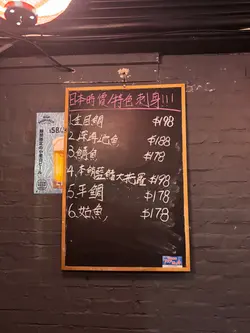 日本時貨/特色刺身!!!
1.金目鯛 $198
2.深海池魚 $188
3.鰆魚 $178
4.本鮪藍鰭大拖羅 $498
5.平鯛 $178
6.始魚 $178
$58